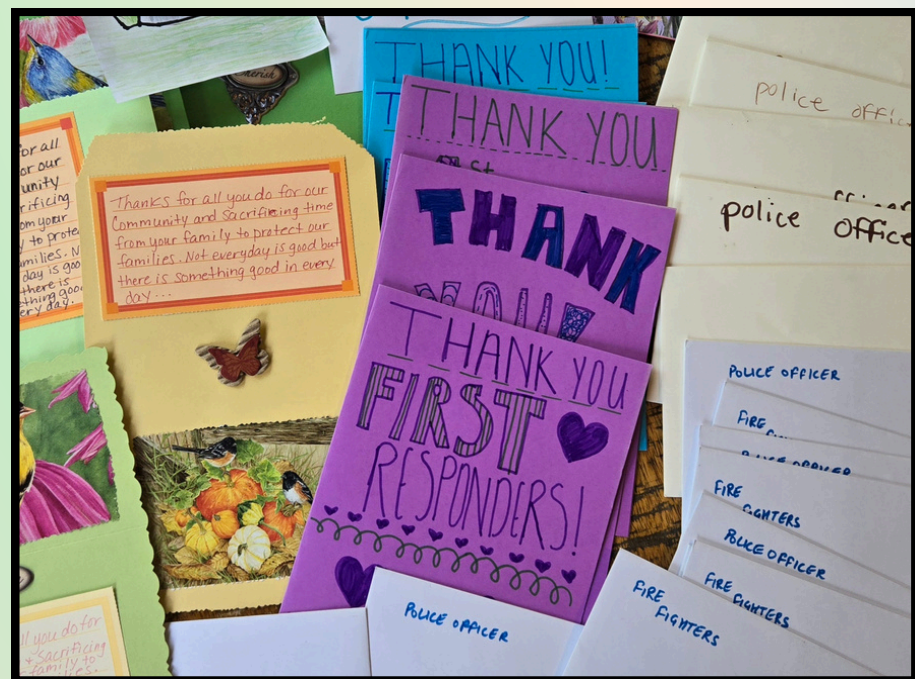 Cherish
or all
or our
unity
rificing
om your
y to prote
milies. N
day is goo
there is
thing good
ery day.
Thanks for all you do for our
Community and Sacrificing time
from your family to protect our
families. Not everyday is good but
there is something good in every
day...
THANK YOU!
THANK YOU
THANK
YOU
THANK YOU
FIRST
RESPONDERS!
police offic
police office
POLICE OFFICER
FIRE
POLICE OFFICER
FIRE
FIGHTERS
POLICE OFFICER
FIRE
FIGHTERS
FIRE
FIGHTERS
POLICE OFFICER
ll you do for
& Sacrificing
family to